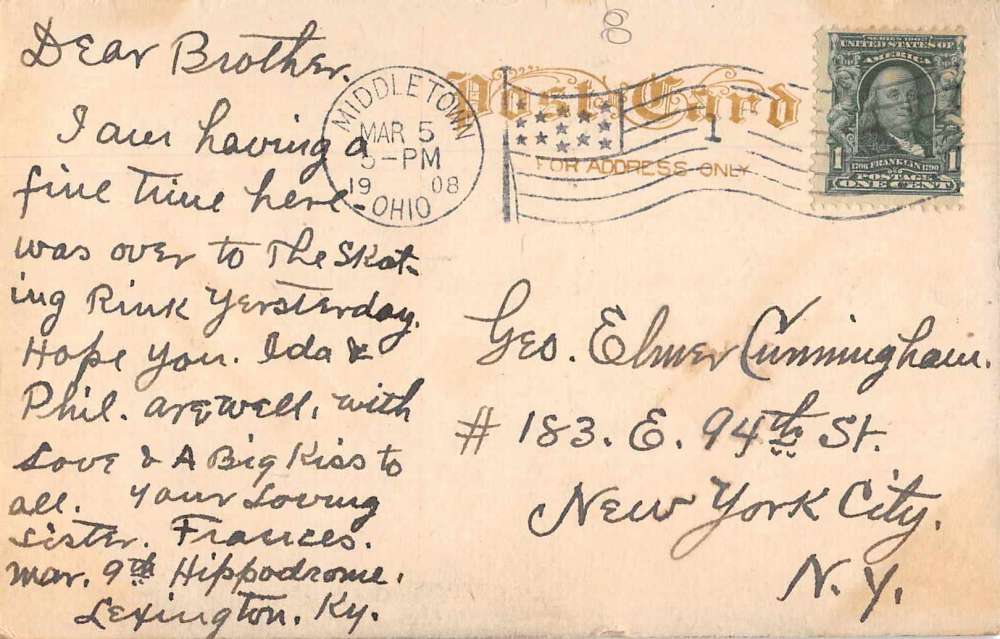 8
Dear Brother.
I am having a
fine time here -
was over to The Skat-
ing Rink Yersterday.
Hope you. Ida &
Phil. are well, with
Love & A Big Kiss to
all. Your Loving
Sister. Frances.
Mar. 9th Hippodrome.
Lexington. Ky.
MIDDLETOWN
MAR 5
5-PM
19 08
OHIO
Post Card
1
FOR ADDRESS ONLY
SERIES 1902
UNITED STATES OF
AMERICA
1 1706 FRANKLIN 1790 1
POSTAGE
ONE CENT
Geo. Elmer Cunningham.
# 183. E. 94th St.
New York City.
N. Y.